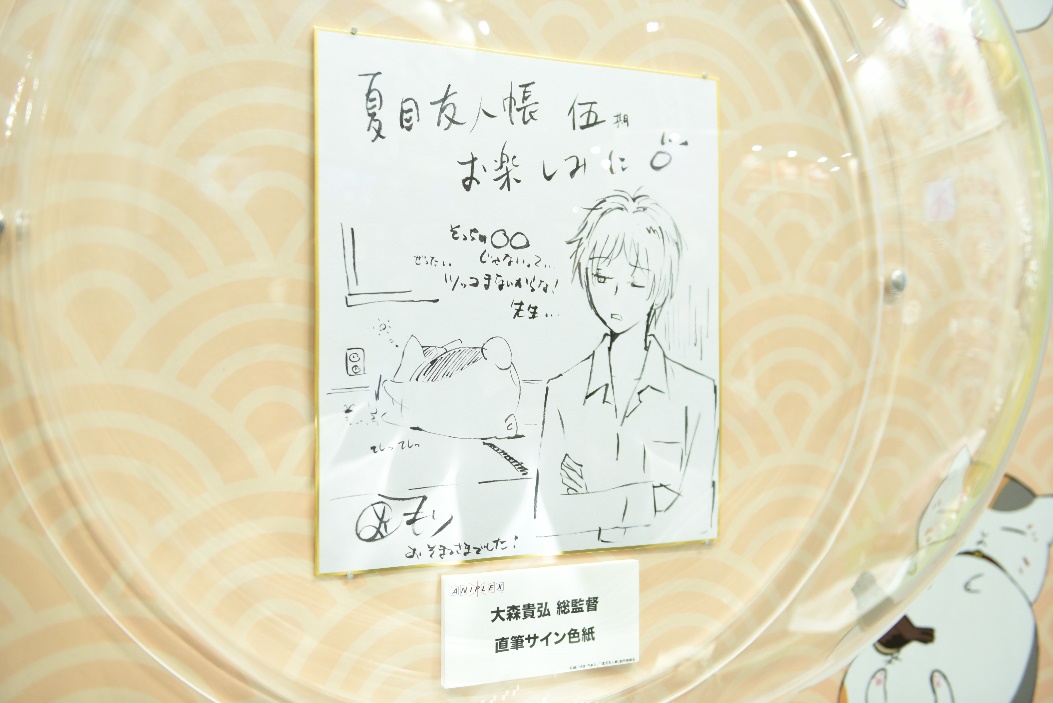 夏目友人帳 伍期
お楽しみに
そっちの〇〇
じゃないって...
ぜったい...
ツッコまないからな!
先生...
てしってしっ
おそまつさまでした!
ANIPLEX
大森貴弘 総監督
直筆サイン色紙